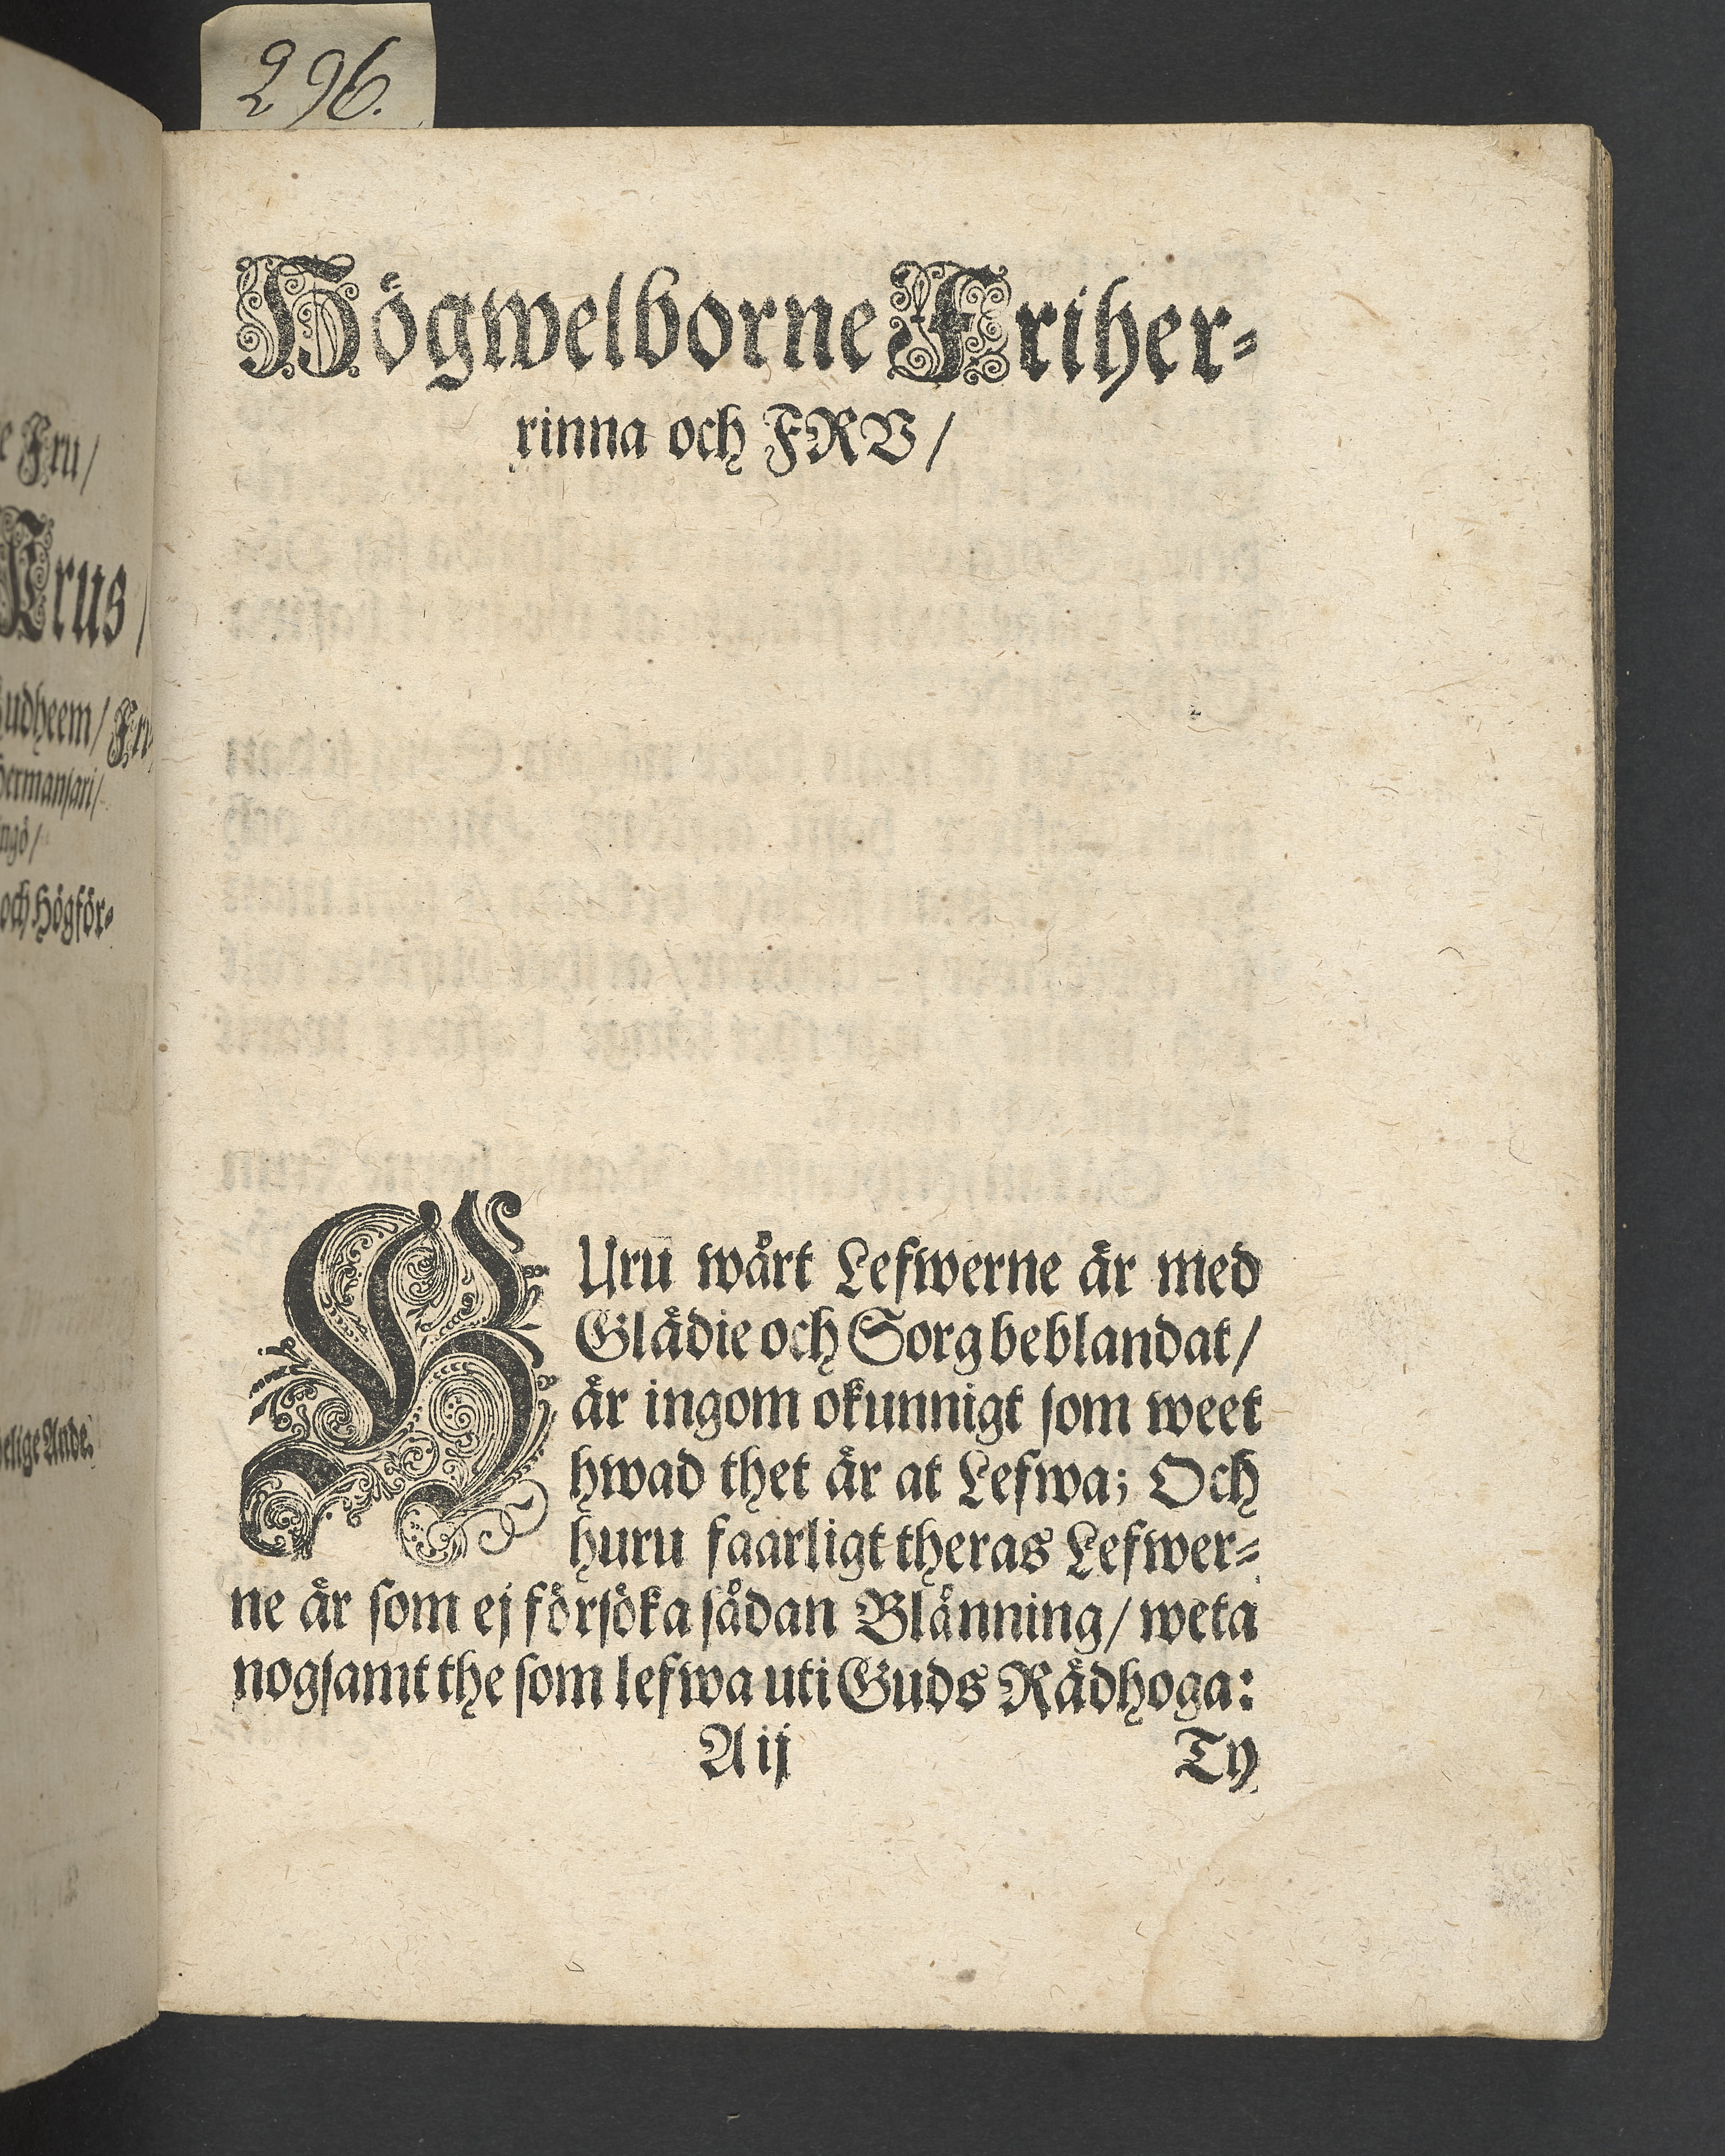 296.
e Fru/
Krus/
udheem/ Fru
hermansari/
ingö/
och Högför⸗
elige Ande.
Högwelborne Friher⸗
rinna och FRV/
HUru wårt Lefwerne är med
Glädie och Sorg beblandat/
är ingom okunnigt som weet
hwad thet är at Lefwa; Och
huru faarligt theras Lefwer⸗
ne är som ej försöka sådan Blänning/ weta
nogsamt the som lefwa uti Guds Rådhoga:
A ij
Ty